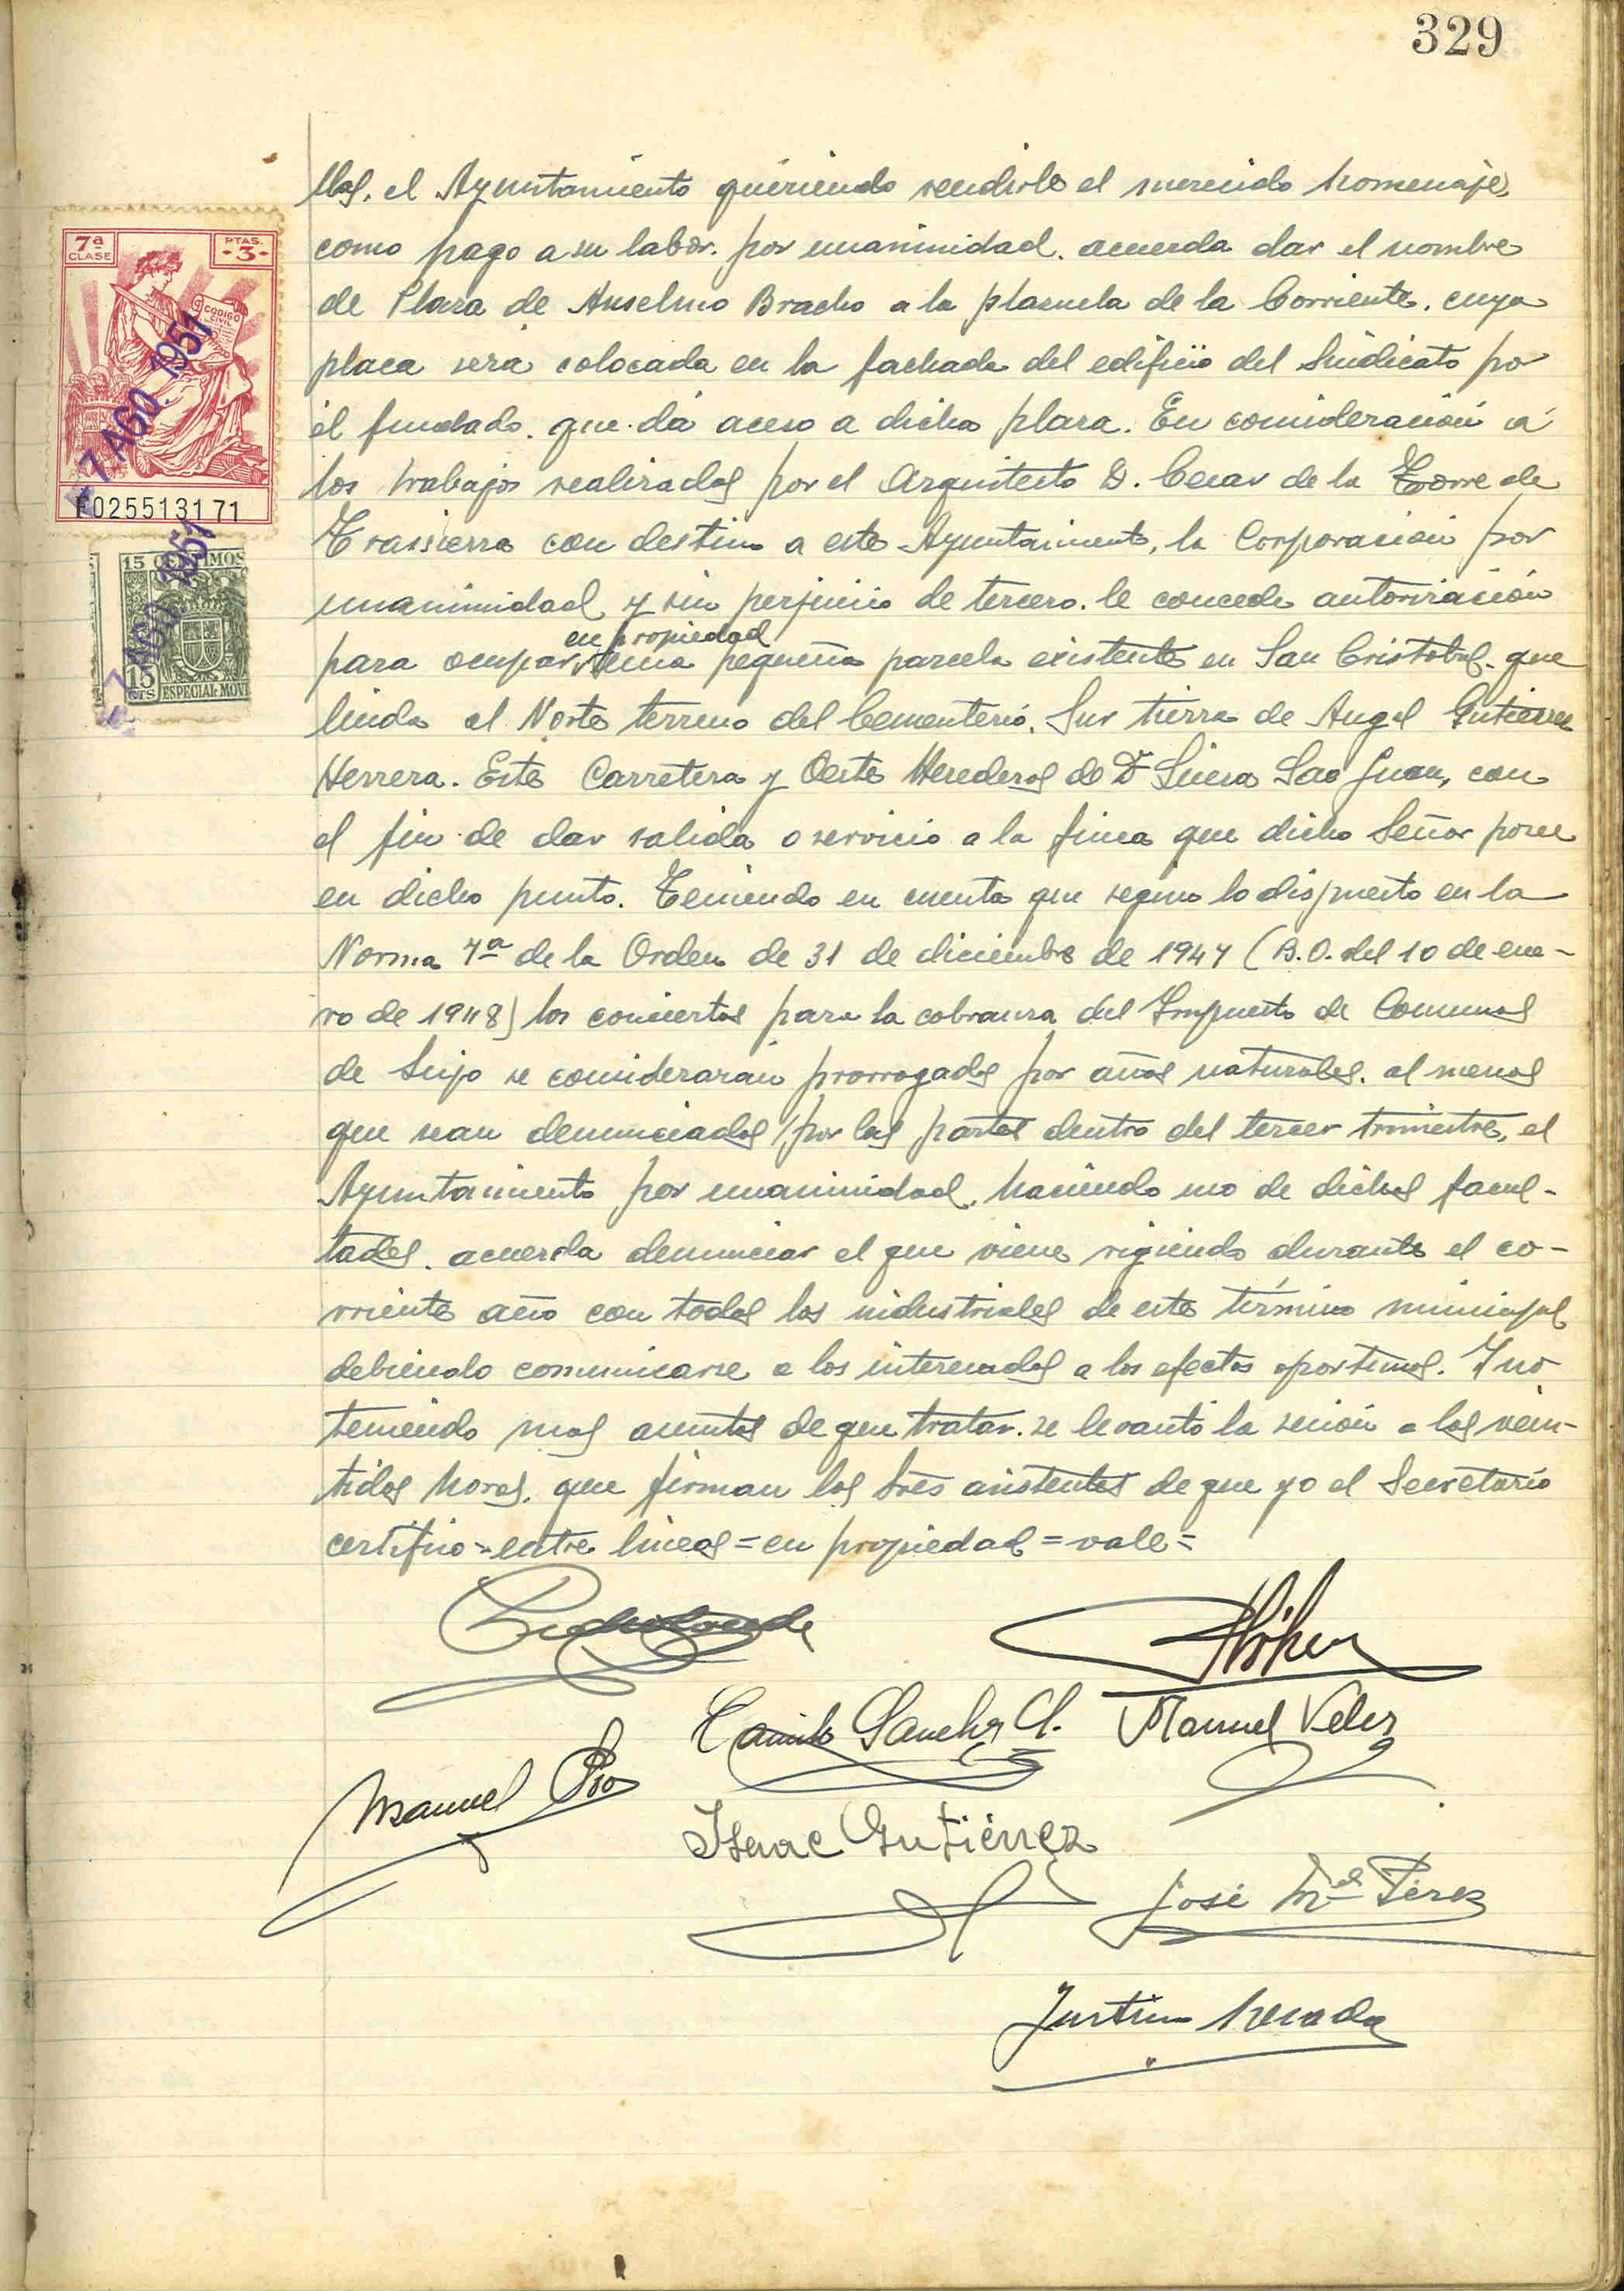 329
llos, el Ayuntamiento queriendo rendirle el merecido homenaje
como pago a su labor. por unanimidad. acuerda dar el nombre
de Plaza de Anselmo Bracho a la plazuela de la Corriente. cuya
placa será colocada en la fachada del edificio del Sindicato por
él fundado. que dá acceso a dicha plaza. En consideración á
los trabajos realizados por el Arquitecto D. Cesar de la Torre de
Trassierra con destino a este Ayuntamiento, la Corporación por
unanimidad y sin perjuicio de tercero. le concede autorización
en propiedad
para ocupar una pequeña parcela existente en San Cristobal. que
linda al Norte terreno del Cementerio. Sur tierra de Angel Gutierrez
Herrera. Este Carretera y Oeste Herederos de Dª San Juan, con
el fin de dar salida o servicio a la finca que dicho Señor posee
en dicho punto. Teniendo en cuenta que segun lo dispuesto en la
Norma 7ª de la Orden de 31 de diciembre de 1947 (B.O. del 10 de ene-
ro de 1948) los conciertos para la cobranza del Impuesto de Consumos
de Lujo se considerarán prorrogados por años naturales. al menos
que sean denunciados por las partes dentro del tercer trimestre, el
Ayuntamiento por unanimidad. haciendo uso de dichas facul-
tades. acuerda denunciar el que viene rigiendo durante el co-
rriente año con todos los industriales de este término municipal
debiendo comunicarse a los interesados a los efectos oportunos. Y no
teniendo mas asuntos de que tratar. se levantó la sesión a las vein-
tidos horas. que firman los Sres asistentes de que yo el Secretario
certifico = entre lineas = en propiedad = vale =
7ª
CLASE
PTAS.
-3-
CODIGO
CIVIL
-7 AGO. 1951
F025513171
15 CENTIMOS
-7 AGO. 1951
15
CTS
ESPECIAL MOVI
Camilo Sanchez G. Manuel Velez
Manuel Pio
Isaac Gutiérrez
José Mel Pérez
Justino